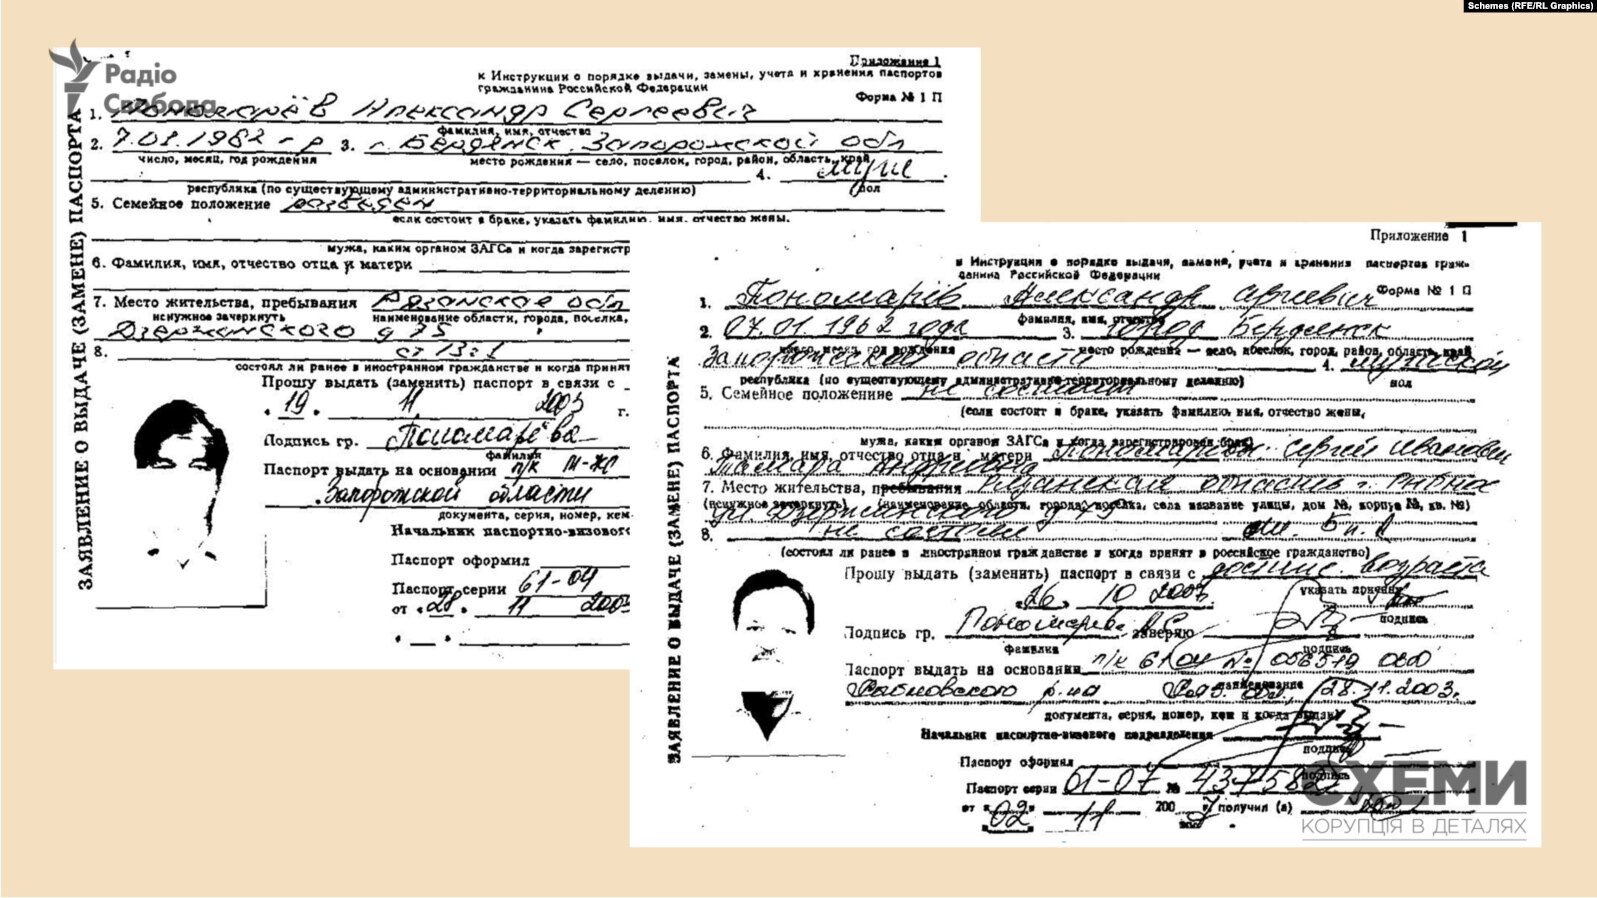 Schemes (RFE/RL Graphics)
Радіо
Свобода
Приложение 1
к Инструкции о порядке выдачи, замены, учета и хранения паспортов
гражданина Российской Федерации
Форма № 1 П
ЗАЯВЛЕНИЕ О ВЫДАЧЕ (ЗАМЕНЕ) ПАСПОРТА
1. Пономарёв Александр Сергеевич
фамилия, имя, отчество
2. 7.01.1962 г-р 3. г. Бердянск Запорожской обл
число, месяц, год рождения место рождения — село, поселок, город, район, область, край
4. муж
республика (по существующему административно-территориальному делению) пол
5. Семейное положение разведен
если состоит в браке, указать фамилию, имя, отчество жены,
мужа, каким органом ЗАГСа и когда зарегистр
6. Фамилия, имя, отчество отца и матери
7. Место жительства, пребывания Рязанское обл
ненужное зачеркнуть наименование области, города, поселка,
Дзержинского д 75
8.
состоял ли ранее в иностранном гражданстве и когда принят
Прошу выдать (заменить) паспорт в связи с
19. 11 2003 г.
Подпись гр. Пономарёва
фамилия
Паспорт выдать на основании п/к
Запорожской области
документа, серия, номер, кем
Начальник паспортно-визового
Паспорт оформил
Паспорт серии 61-04
от «28» 11 2003
Приложение 1
к Инструкции о порядке выдачи, замены, учета и хранения паспортов граж-
данина Российской Федерации
Форма № 1 П
ЗАЯВЛЕНИЕ О ВЫДАЧЕ (ЗАМЕНЕ) ПАСПОРТА
1. Пономарёв Александр Сергиевич
фамилия, имя, отчество
2. 07.01.1962 года 3. город Бердянск
число, месяц, год рождения место рождения — село, поселок, город, район, область, край
Запорожской области 4. мужской
республика (по существующему административно-территориальному делению) пол
5. Семейное положениие не состоит
(если состоит в браке, указать фамилию, имя, отчество жены,
мужа, каким органом ЗАГСа и когда зарегистрирован брак)
6. Фамилия, имя, отчество отца и матери Пономарёв Сергей Иванович
Тамара Андреевна
7. Место жительства, пребывания Рязанская область г. Рыбное
(ненужное зачеркнуть) (наименование области, города, поселка, села название улицы, дом №, корпус №, кв. №)
ул. Дзержинского д
8. не состоял
(состоял ли ранее в иностранном гражданстве и когда принят в российское гражданство)
Прошу выдать (заменить) паспорт в связи с достиг. возраста
указать причину
26. 10 2007
подпись
Подпись гр. Пономарева А С заверяю
фамилия подпись
Паспорт выдать на основании п/к 61 04 № 056519 ОВД
наименование
Рыбновского р-на Ряз. обл. 28.11.2003г.
документа, серия, номер, кем и когда выдан
Начальник паспортно-визового подразделения
подпись
Паспорт оформил
подпись
Паспорт серии 61-07 № 437582
от «02» 11 2007 получил (а)
СХЕМИ
КОРУПЦІЯ В ДЕТАЛЯХ